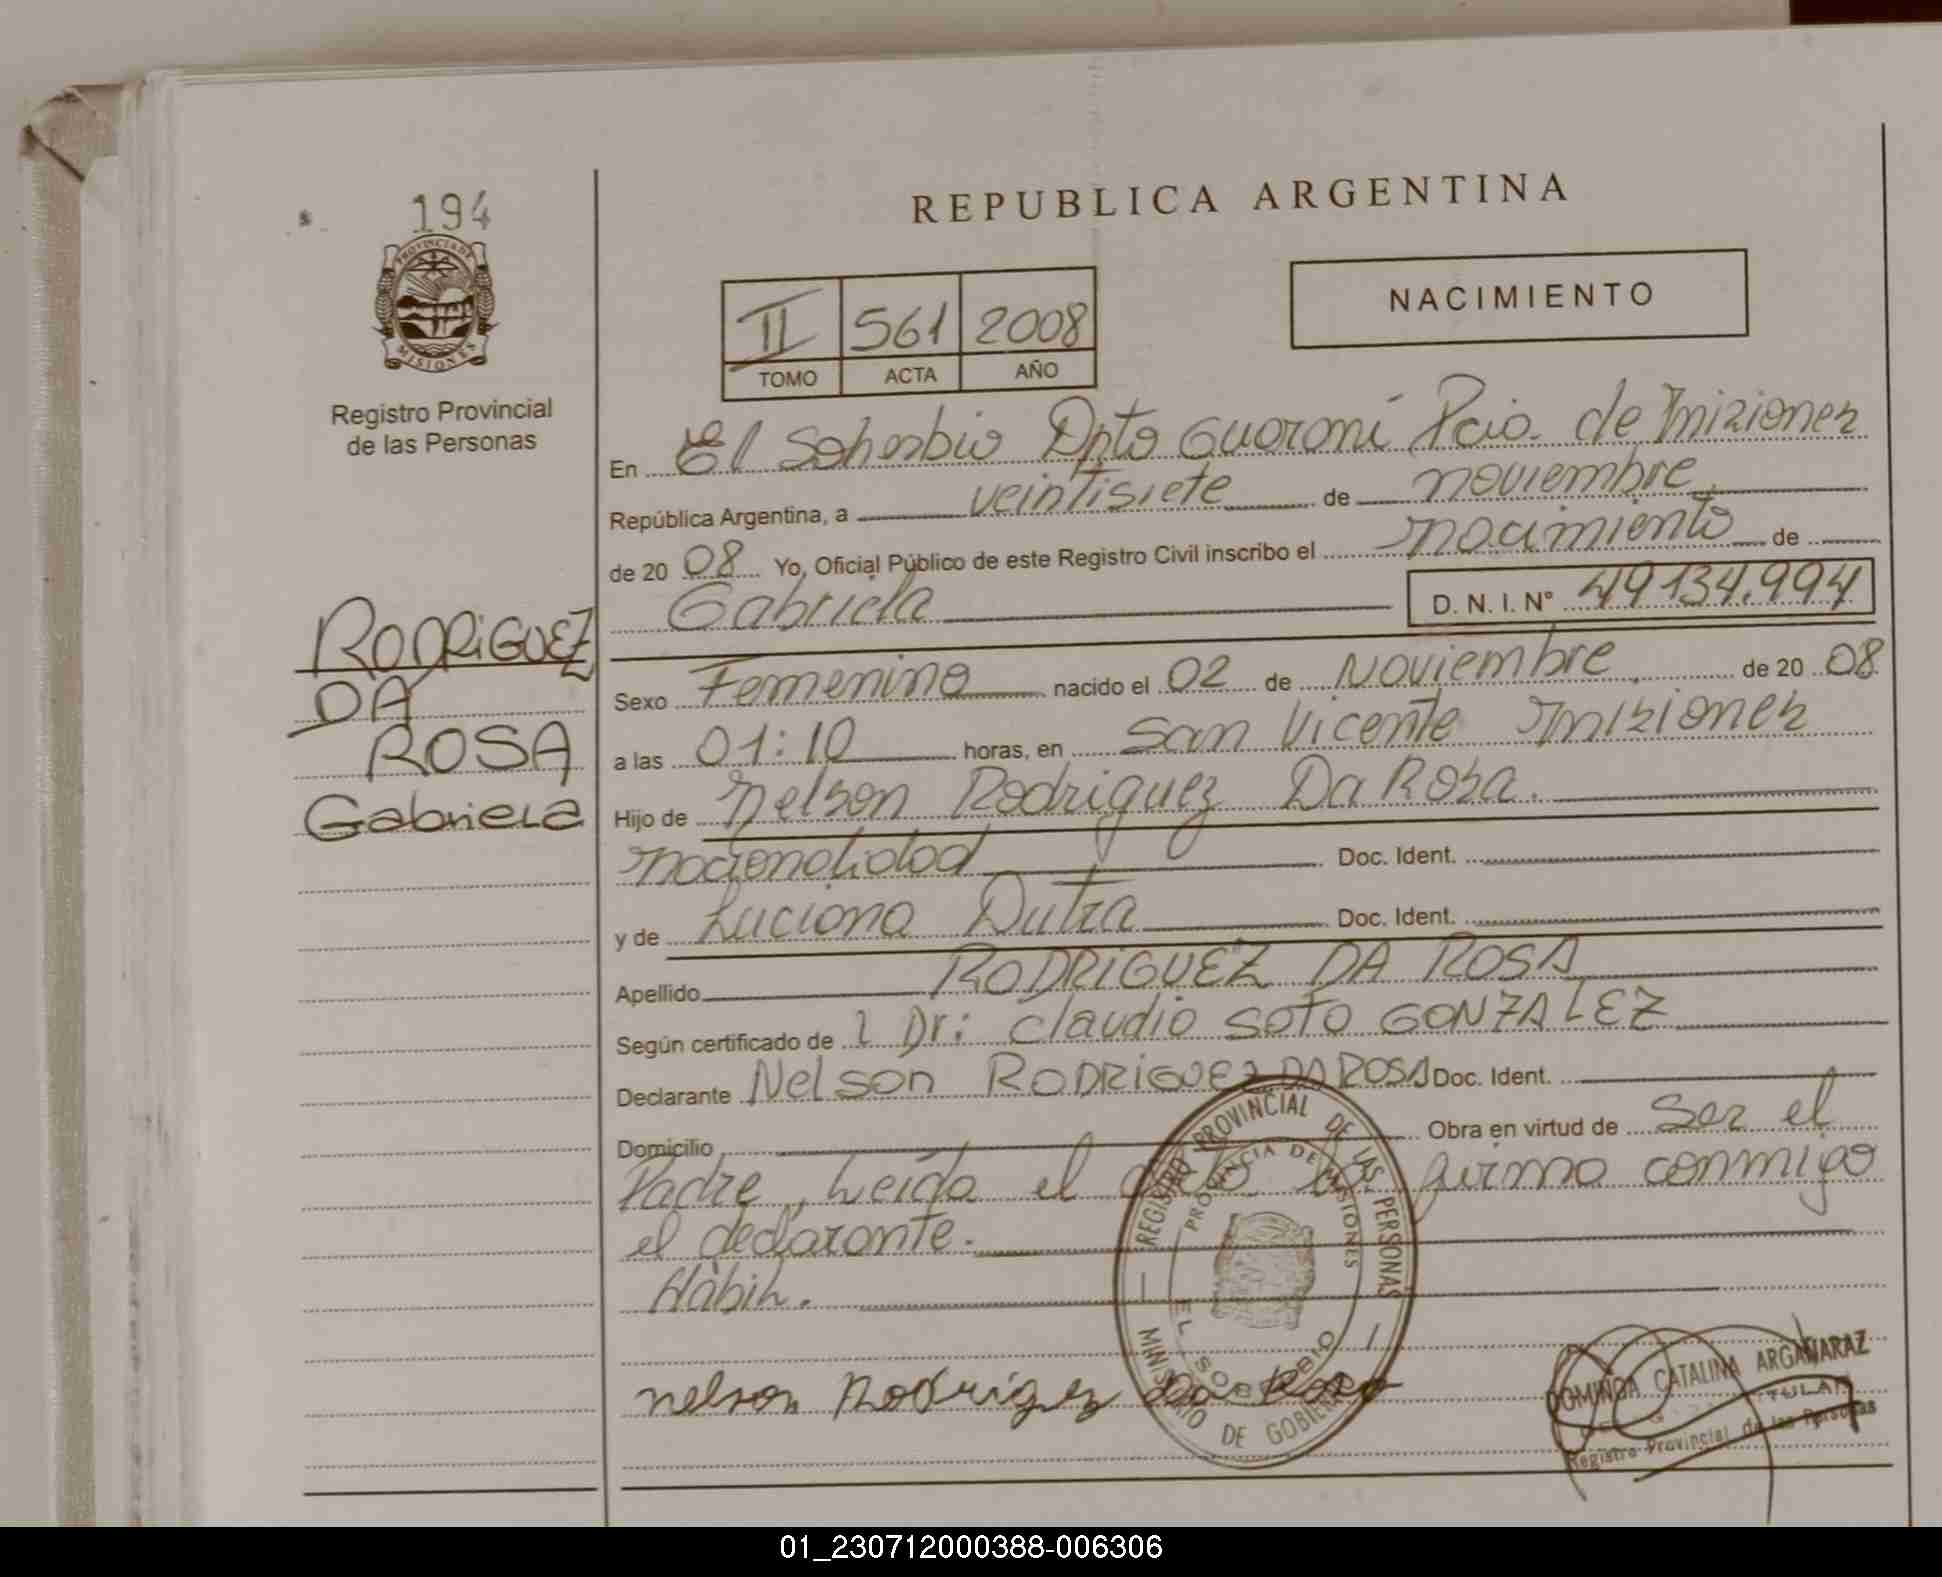 194
PROVINCIA DE
MISIONES
Registro Provincial
de las Personas
RODRIGUEZ
DA
ROSA
Gabriela
REPUBLICA ARGENTINA
II 561 2008
TOMO ACTA AÑO
NACIMIENTO
En El Soberbio Dpto Guaraní Pcia. de Misiones
República Argentina, a veintisiete de noviembre
de 20 08 Yo, Oficial Público de este Registro Civil inscribo el nacimiento de
Gabriela D. N. I. Nº 49134.994
Sexo Femenino nacido el 02 de Noviembre de 20 08
a las 01:10 horas, en San Vicente Misiones
Hijo de Nelson Rodriguez Da Rosa.
nacionalidad Doc. Ident.
y de Luciana Dutra Doc. Ident.
Apellido RODRIGUEZ DA ROSA
Según certificado de l Dr: Claudio SOTO GONZALEZ
Declarante Nelson RODRIGUEZ DA ROSA Doc. Ident.
Domicilio Obra en virtud de ser el
Padre, Leída el acta la firma conmigo
el declarante.
Hábil.
REGISTRO PROVINCIAL DE LAS PERSONAS
PROVINCIA DE MISIONES
EL SOBERBIO
MINISTERIO DE GOBIERNO
nelson Rodriguez Da Rosa
DOMINGA CATALINA ARGAÑARAZ
TITULAR
Registro Provincial de las Personas
01_230712000388-006306